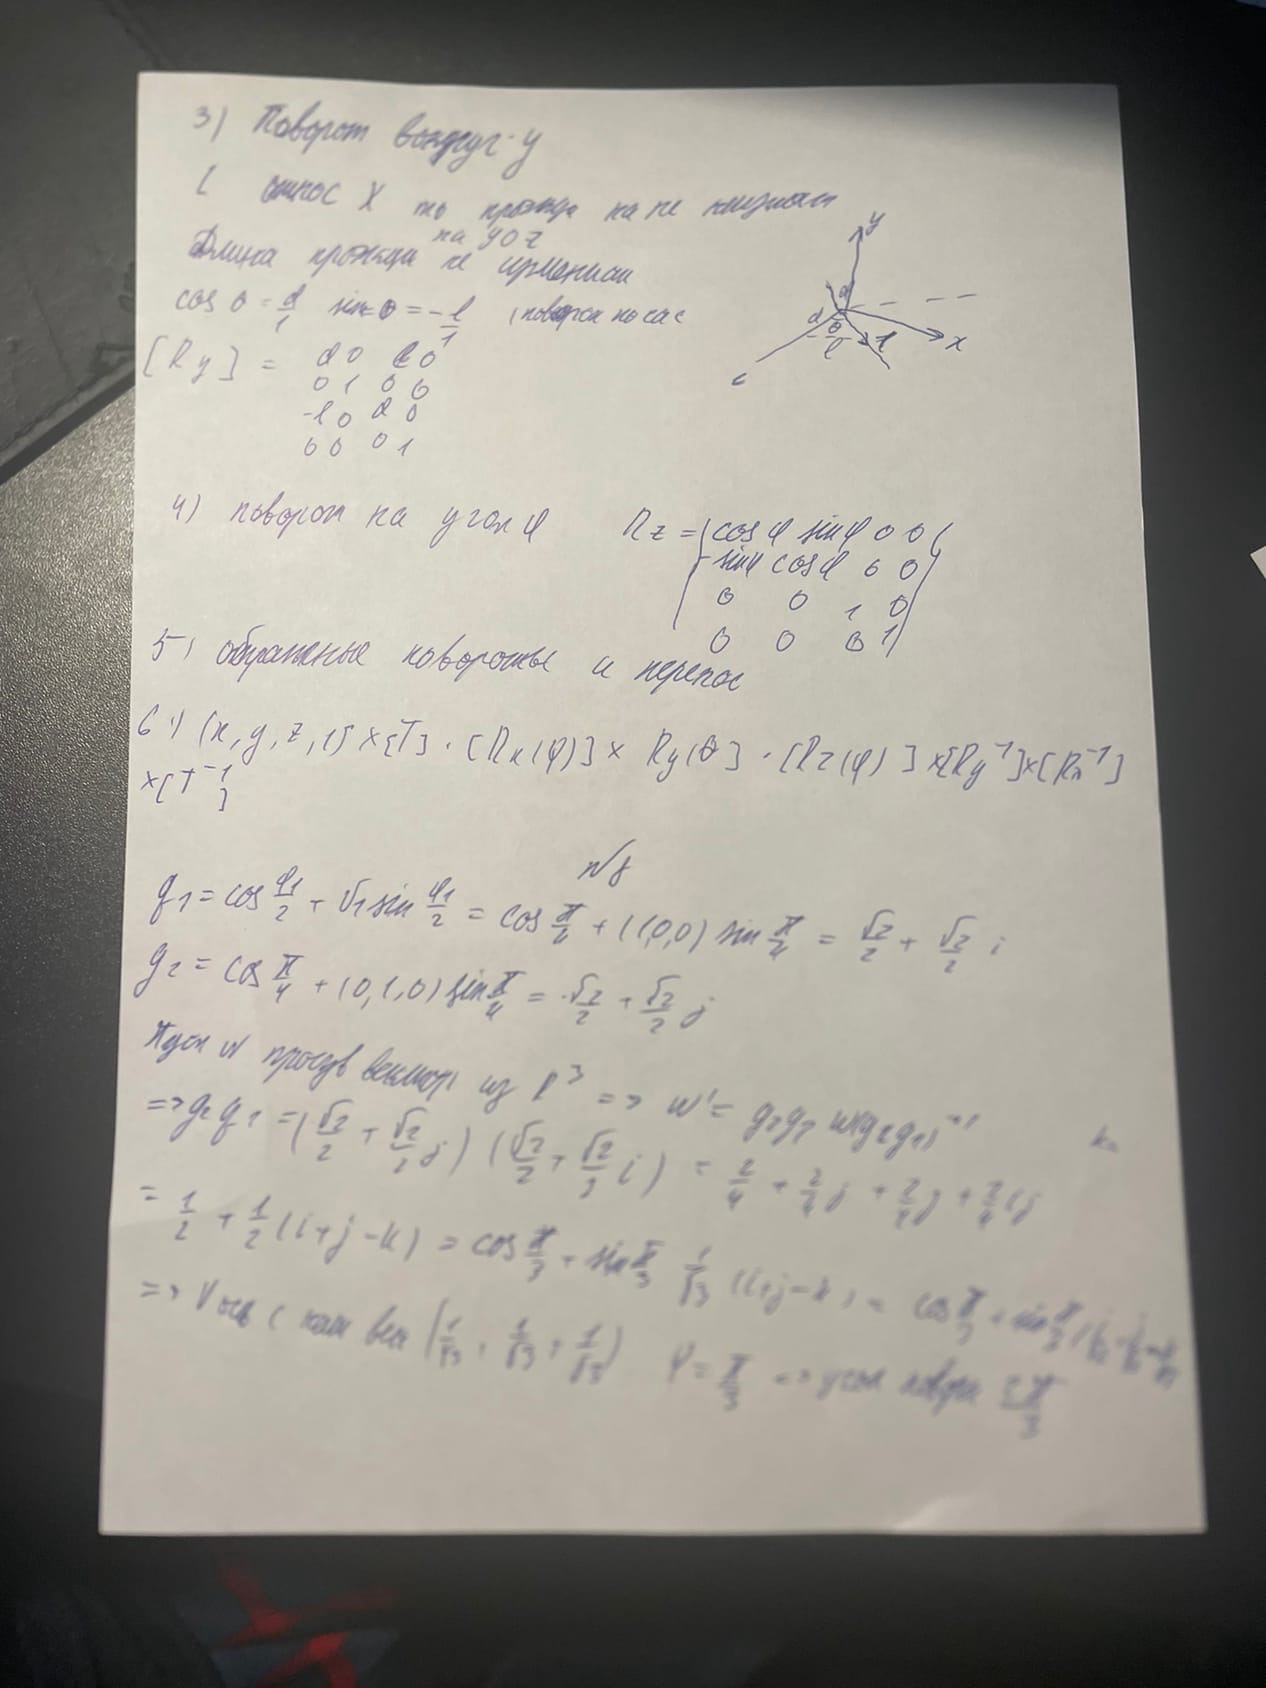 3) Поворот вокруг y
l относ X то проекция на не
на yoz
Длина проекции не
cos θ = d/1 sin θ = -l/1 (поворот по час
[Ry] = d 0 l 0
0 1 0 0
-l 0 d 0
0 0 0 1
y
d
d
θ
l
l
x
4) поворот на угол φ
Rz = (cos φ sin φ 0 0
-sin φ cos φ 0 0
0 0 1 0
0 0 0 1)
5) обратные повороты и перенос
6) (x, y, z, 1) × [T] · [Rx(φ)] × Ry(θ] · [Rz(φ)] × [Ry⁻¹] × [Rx⁻¹]
× [T⁻¹]
N8
q₁ = cos φ₁/2 + v₁ sin φ₁/2 = cos π/4 + (1,0,0) sin π/4 = √2/2 + √2/2 i
q₂ = cos π/4 + (0,1,0) sin π/4 = √2/2 + √2/2 j
Пусть w вектор из R³ => w' = q₂q₁ w(q₂q₁)⁻¹
=> q₂ q₁ = (√2/2 + √2/2 j) (√2/2 + √2/2 i) = 2/4 + 2/4 j + 2/4 j + 2/4 ij
= 1/2 + 1/2 (i+j-k) = cos π/3 + sin π/3 1/√3 (i+j-k) = cos π/3 + sin π/3
=> V ось с (1/√3, 1/√3, 1/√3) φ = π/3 => угол повора 2π/3